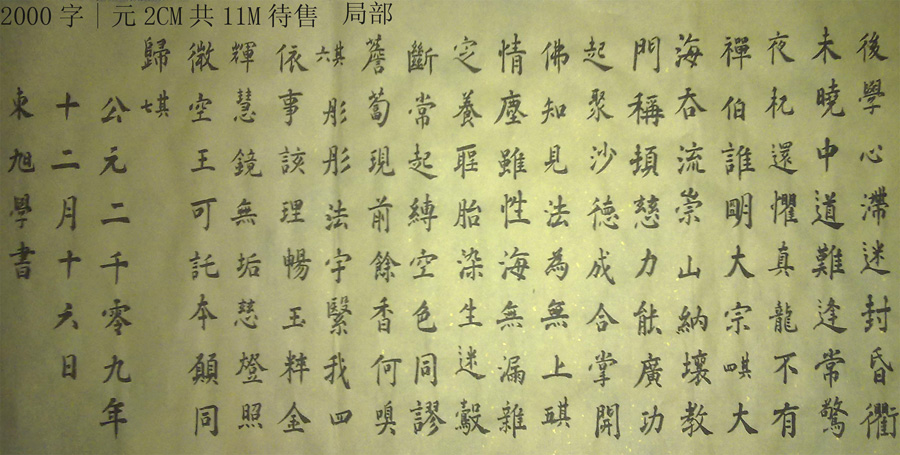 2000字｜元 2CM共11M待售 局部
後學心滯迷封昏衢
未曉中道難逢常驚
夜杌還懼真龍不有
禪伯誰明大宗 其四 大
海吞流崇山納壤教
門稱頓慈力能廣功
起聚沙德成合掌開
佛知見法為無上 其五
情塵雖性海無漏雜
定養聖胎染生迷鷇
斷常起縛空色同謬
薝蔔現前餘香何嗅
其六 彤彤法宇繄我四
依事該理暢玉粹金
輝慧鏡無垢慈燈照
微空王可託本願同
歸 其七
公元二千零九年
十二月十六日
東旭學書